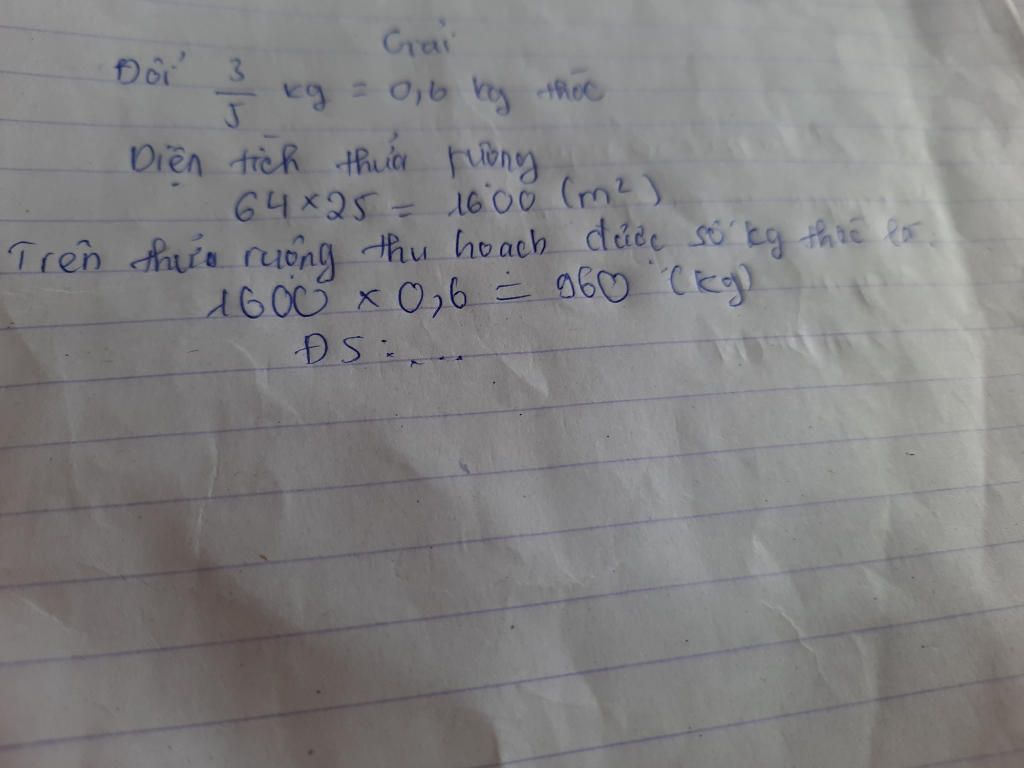 Giải
Đổi 3/5 kg = 0,6 kg thóc
Diện tích thửa ruộng
64 × 25 = 1600 (m²)
Trên thửa ruộng thu hoạch được số kg thóc là:
1600 × 0,6 = 960 (kg)
ĐS: ....